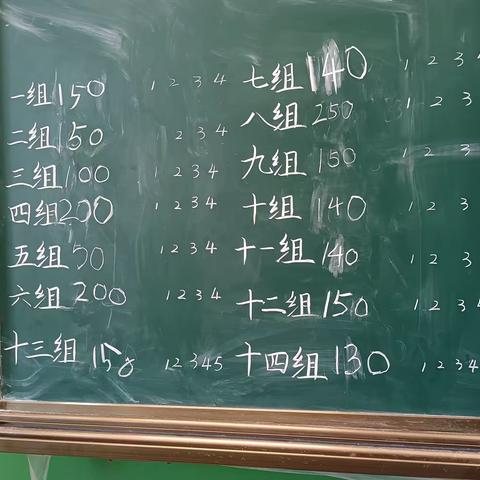 一组 150 1 2 3 4
二组 150 2 3 4
三组 100 1 2 3 4
四组 200 1 2 3 4
五组 50 1 2 3 4
六组 200 1 2 3 4
十三组 150 1 2 3 4 5
七组 140 1 2 3 4
八组 250 1 2 3
九组 150 1 2 3
十组 140 1 2 3
十一组 140 1 2 3
十二组 150 1 2 3 4
十四组 130 1 2 3 4